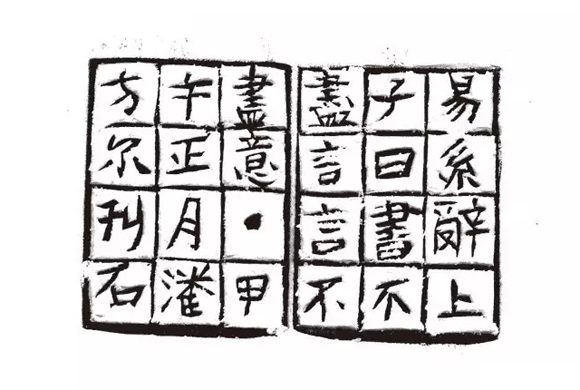 易系辭上
子曰書不
盡言言不
盡意·甲
午正月潘
方尔刊石